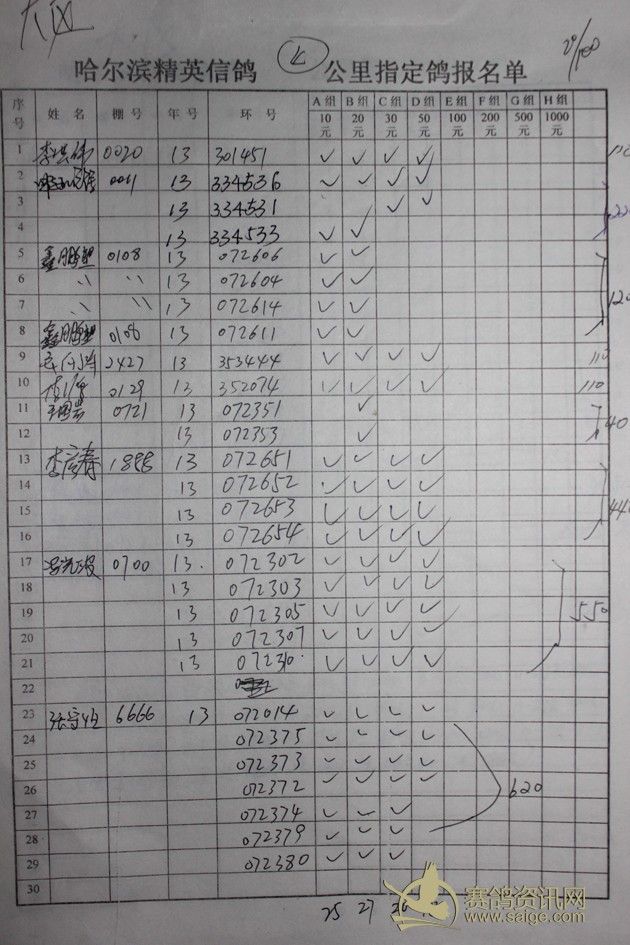 大区
哈尔滨精英信鸽 公里指定鸽报名单
序号 姓名 棚号 年号 环号 A组10元 B组20元 C组30元 D组50元 E组100元 F组200元 G组500元 H组1000元
1 0020 13 301451 ✓ ✓ ✓ ✓ 110
2 13 334536 ✓ ✓ ✓ ✓
3 13 334531 ✓ ✓
4 13 334533 ✓ ✓
5 鑫鹏塑 0108 13 072606 ✓ ✓
6 〃 〃 13 072604 ✓ ✓
7 〃 〃 13 072614 ✓ ✓ 120
8 鑫鹏塑 0108 13 072611 ✓ ✓
9 2427 13 353444 ✓ ✓ ✓ ✓ 110
10 0129 13 352074 ✓ ✓ ✓ ✓ 110
11 0721 13 072351 ✓
12 13 072353 ✓ 40
13 李彦春 1888 13 072651 ✓ ✓ ✓ ✓
14 13 072652 ✓ ✓ ✓ ✓
15 13 072653 ✓ ✓ ✓ ✓ 440
16 13 072654 ✓ ✓ ✓ ✓
17 0700 13. 072302 ✓ ✓ ✓ ✓
18 13 072303 ✓ ✓ ✓ ✓
19 13 072305 ✓ ✓ ✓ ✓ 550
20 13 072307 ✓ ✓ ✓ ✓
21 13 ✓ ✓ ✓ ✓
22
23 6666 13 072014 ✓ ✓ ✓ ✓
24 072375 ✓ ✓ ✓ ✓
25 072373 ✓ ✓ ✓ ✓
26 072372 ✓ ✓ ✓ ✓ 620
27 072374 ✓ ✓ ✓
28 072379 ✓ ✓ ✓
29 072380 ✓ ✓ ✓
30
25 27
赛鸽资讯网
www.saige.com